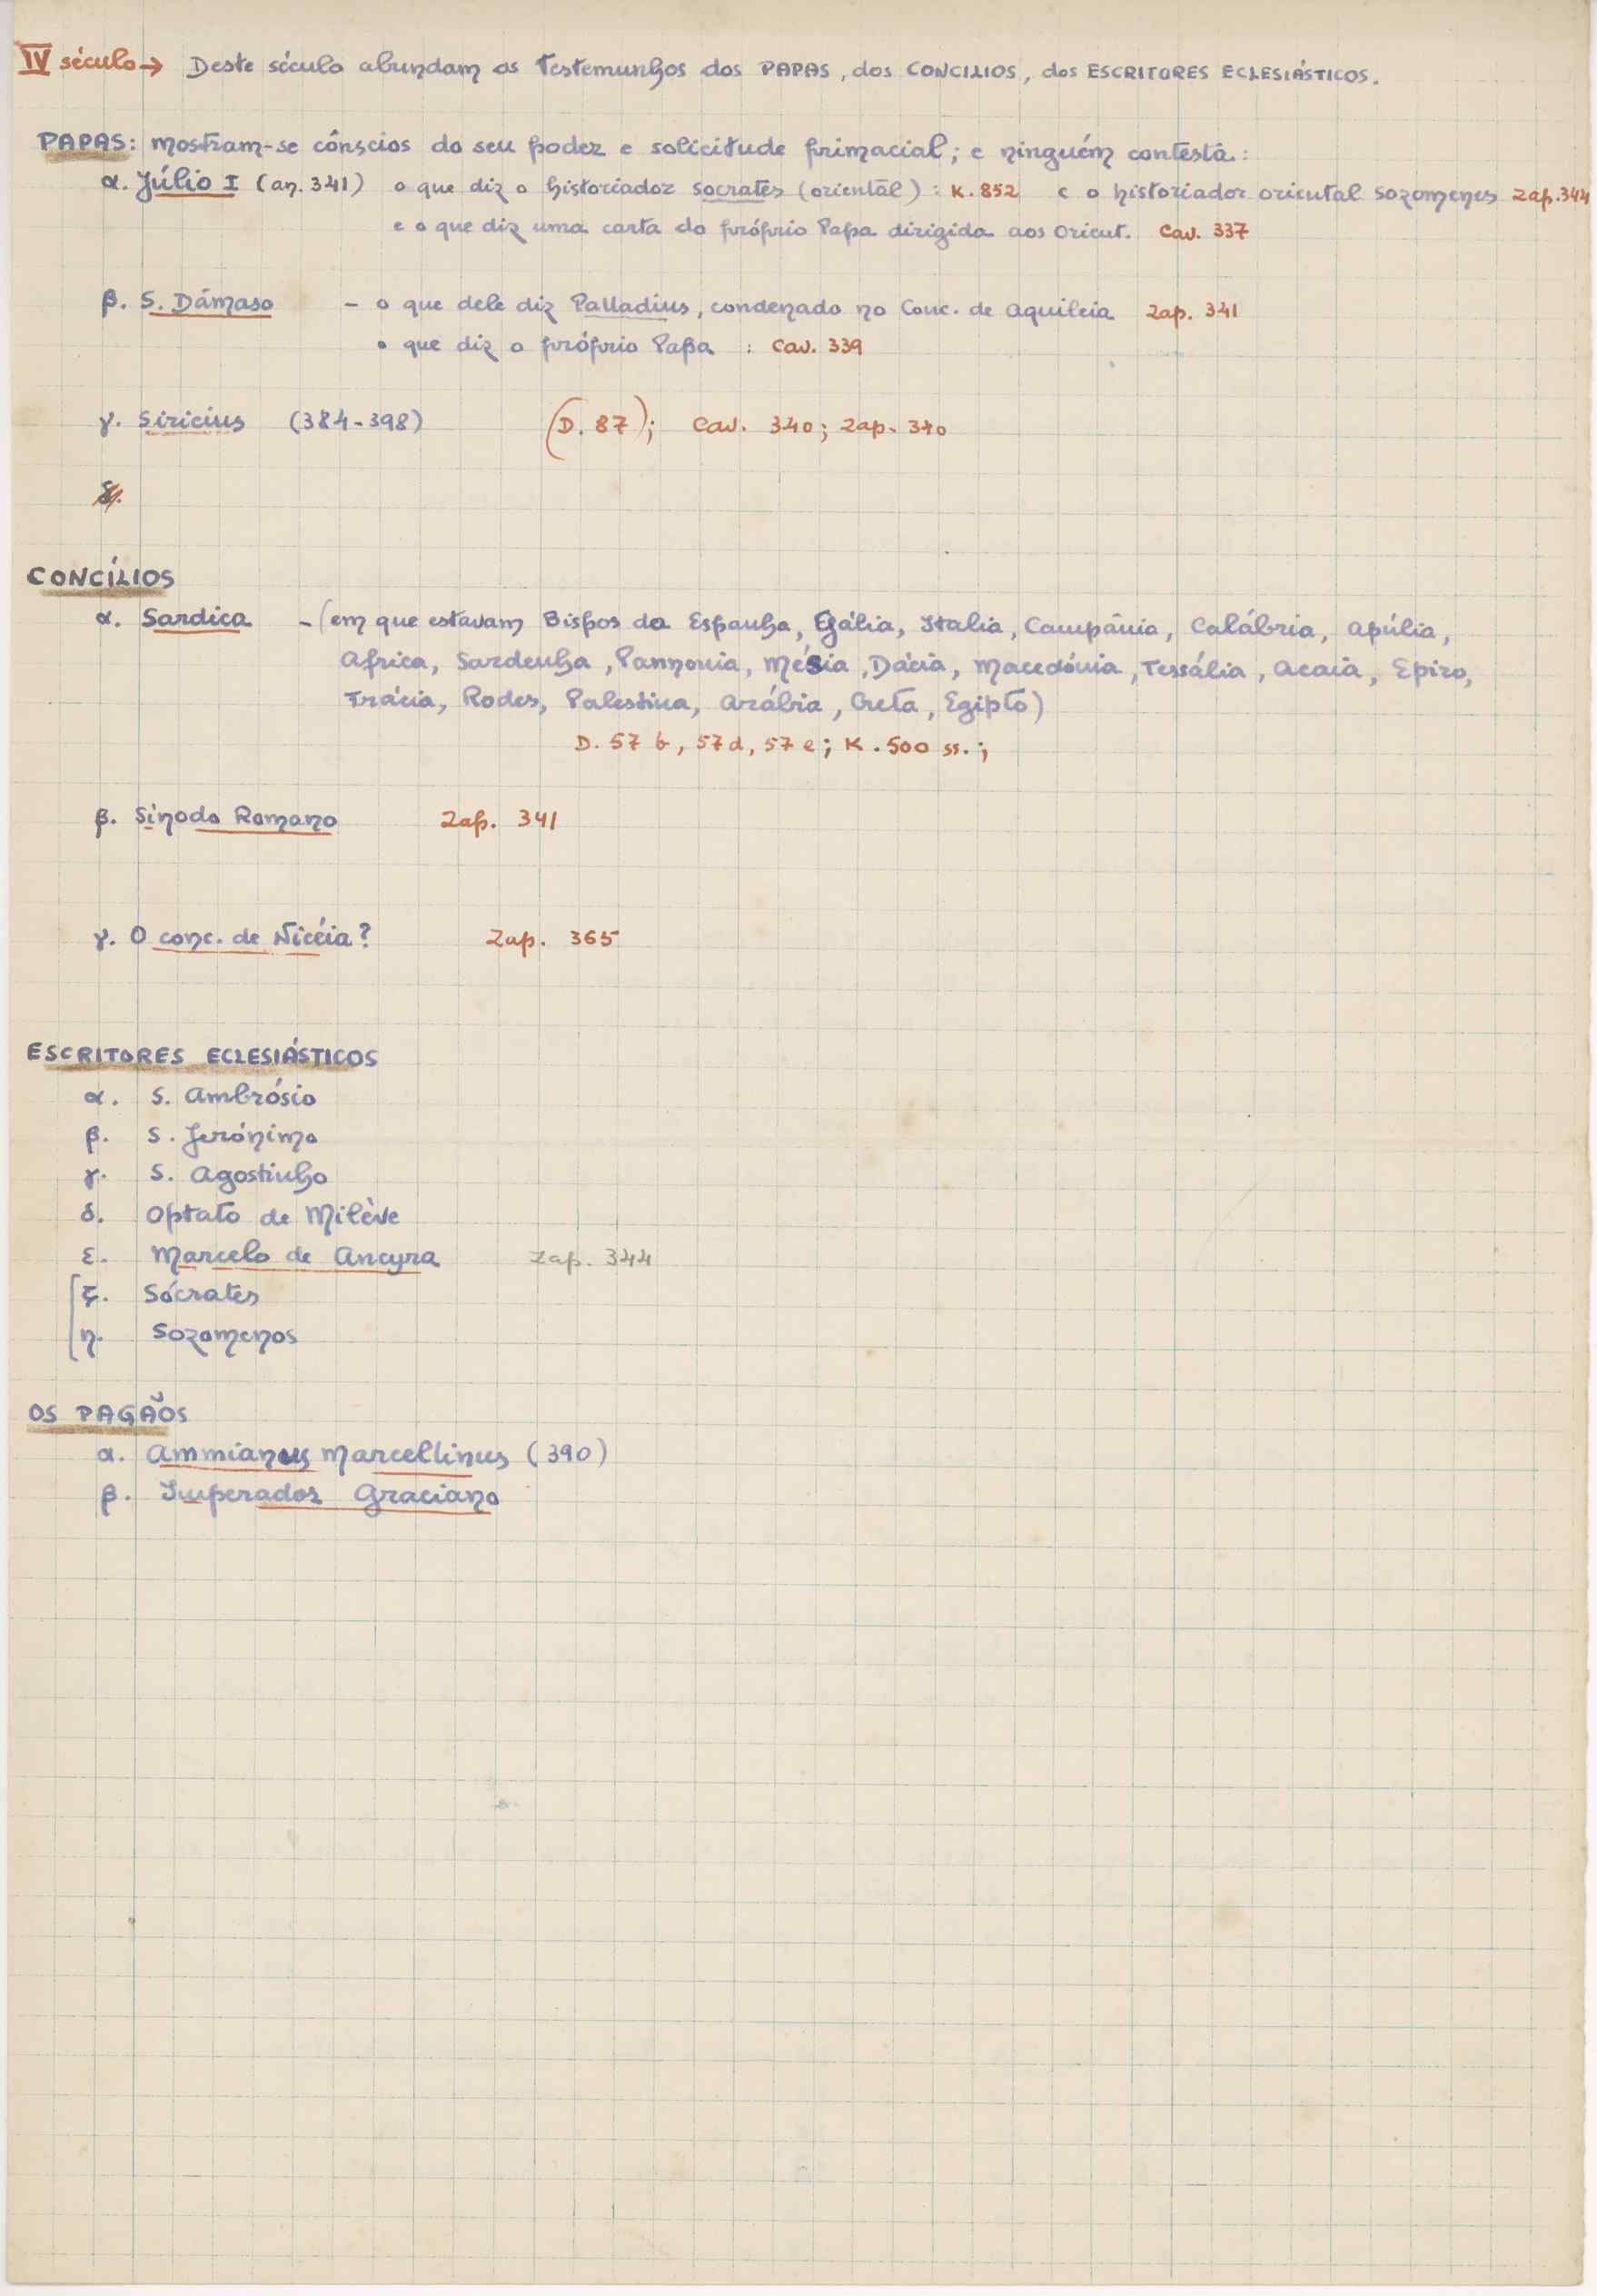 IV século → Deste século abundam os Testemunhos dos PAPAS, dos CONCILIOS, dos ESCRITORES ECLESIÁSTICOS.
PAPAS: mostram-se cônscios do seu poder e solicitude primacial; e ninguém contesta:
α. Júlio I (an. 341) o que diz o historiador Socrates (oriental): K. 852 e o historiador oriental Sozomenes Zap. 344
e o que diz uma carta do próprio Papa dirigida aos Orient. Cav. 337
β. S. Dâmaso – o que dele diz Palladius, condenado no Conc. de Aquileia Zap. 341
o que diz o próprio Papa : Cav. 339
γ. Siricius (384-398) (D. 87); Cav. 340; Zap. 340
δ.
CONCÍLIOS
α. Sardica – (em que estavam Bispos da Espanha, Gália, Italia, Campânia, Calábria, Apúlia,
Africa, Sardenha, Pannonia, Mésia, Dácia, Macedónia, Tessália, Acaia, Epiro,
Trácia, Rodes, Palestina, Arábia, Creta, Egipto)
D. 57 b, 57 d, 57 e; K. 500 ss.;
β. Sinodo Romano Zap. 341
γ. O conc. de Nicéia? Zap. 365
ESCRITORES ECLESIÁSTICOS
α. S. Ambrósio
β. S. Jerónimo
γ. S. Agostinho
δ. Optato de Milève
ε. Marcelo de Ancyra Zap. 344
ζ. Sócrates
η. Sozomenos
OS PAGÃOS
α. Ammianus Marcellinus (390)
β. Imperador Graciano